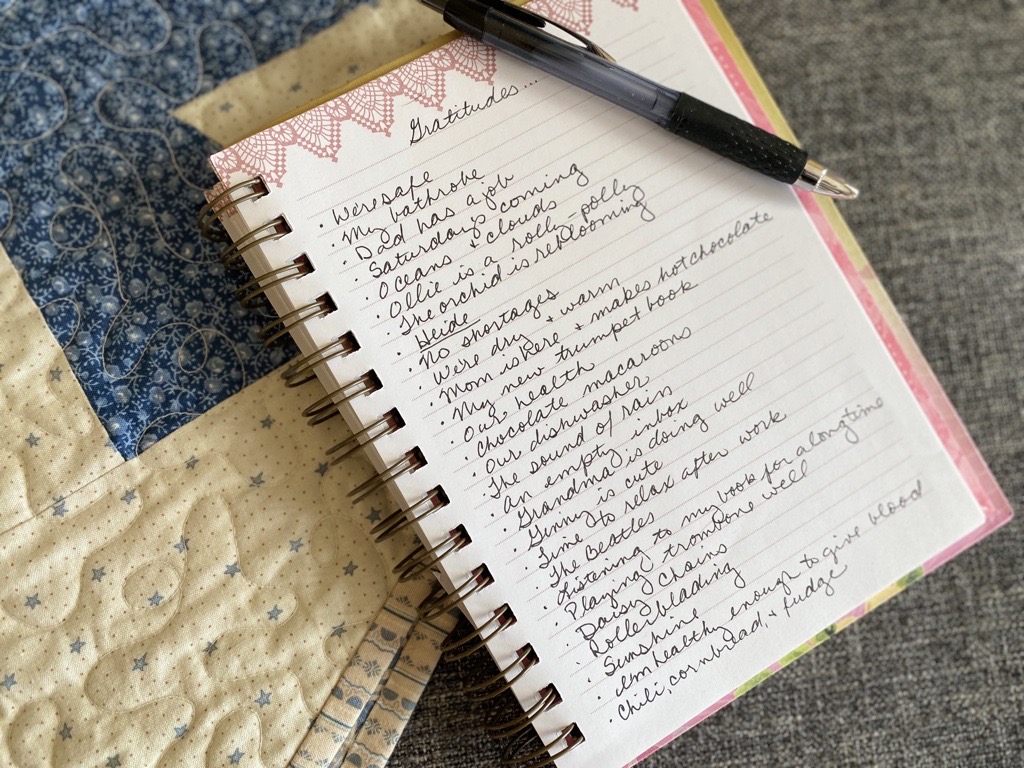 Gratitudes...
· We're safe
· My bathrobe
· Dad has a job
· Saturday's coming
· Oceans + clouds
· Ollie is a rolly-polly
· The orchid is reblooming
· Heide
· No shortages
· We're dry + warm
· Mom is here + makes hot chocolate
· My new trumpet book
· Our health
· Chocolate macaroons
· Our dishwasher
· The sound of rain
· An empty inbox
· Grandma is doing well
· Ginny is cute
· Time to relax after work
· The Beatles
· Listening to my book for a long time
· Playing trombone well
· Daisy chains
· Rollerblading
· Sunshine
· I'm healthy enough to give blood
· Chili, cornbread, + fudge